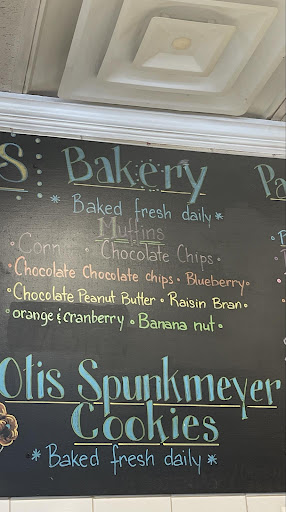 S: Bakery Pa
* Baked fresh daily *
Muffins
• Chocolate Chips •
• Chocolate Chocolate chips • Blueberry •
• Chocolate Peanut Butter • Raisin Bran •
• orange & cranberry • Banana nut •
Otis Spunkmeyer
Cookies
* Baked fresh daily *